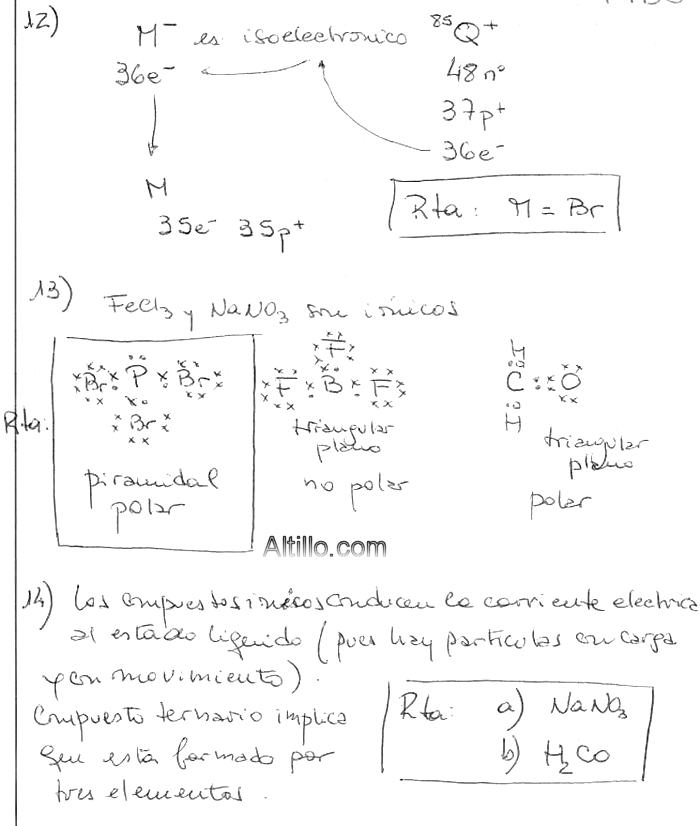 12)
M⁻ es isoelectronico ⁸⁵Q⁺
36e⁻ 48n°
37p⁺
36e⁻
M
35e⁻ 35p⁺
Rta: M = Br
13) FeCl₃ y NaNO₃ son iónicos
Rta:
Br P Br
Br
piramidal
polar
F
F B F
triangular
plano
no polar
H
C O
H
triangular
plano
polar
Altillo.com
14) Los compuestos iónicos conducen la corriente electrica
al estado liquido (pues hay particulas con carga
y con movimiento).
Compuesto ternario implica
que está formado por
tres elementos.
Rta: a) NaNO₃
b) H₂CO